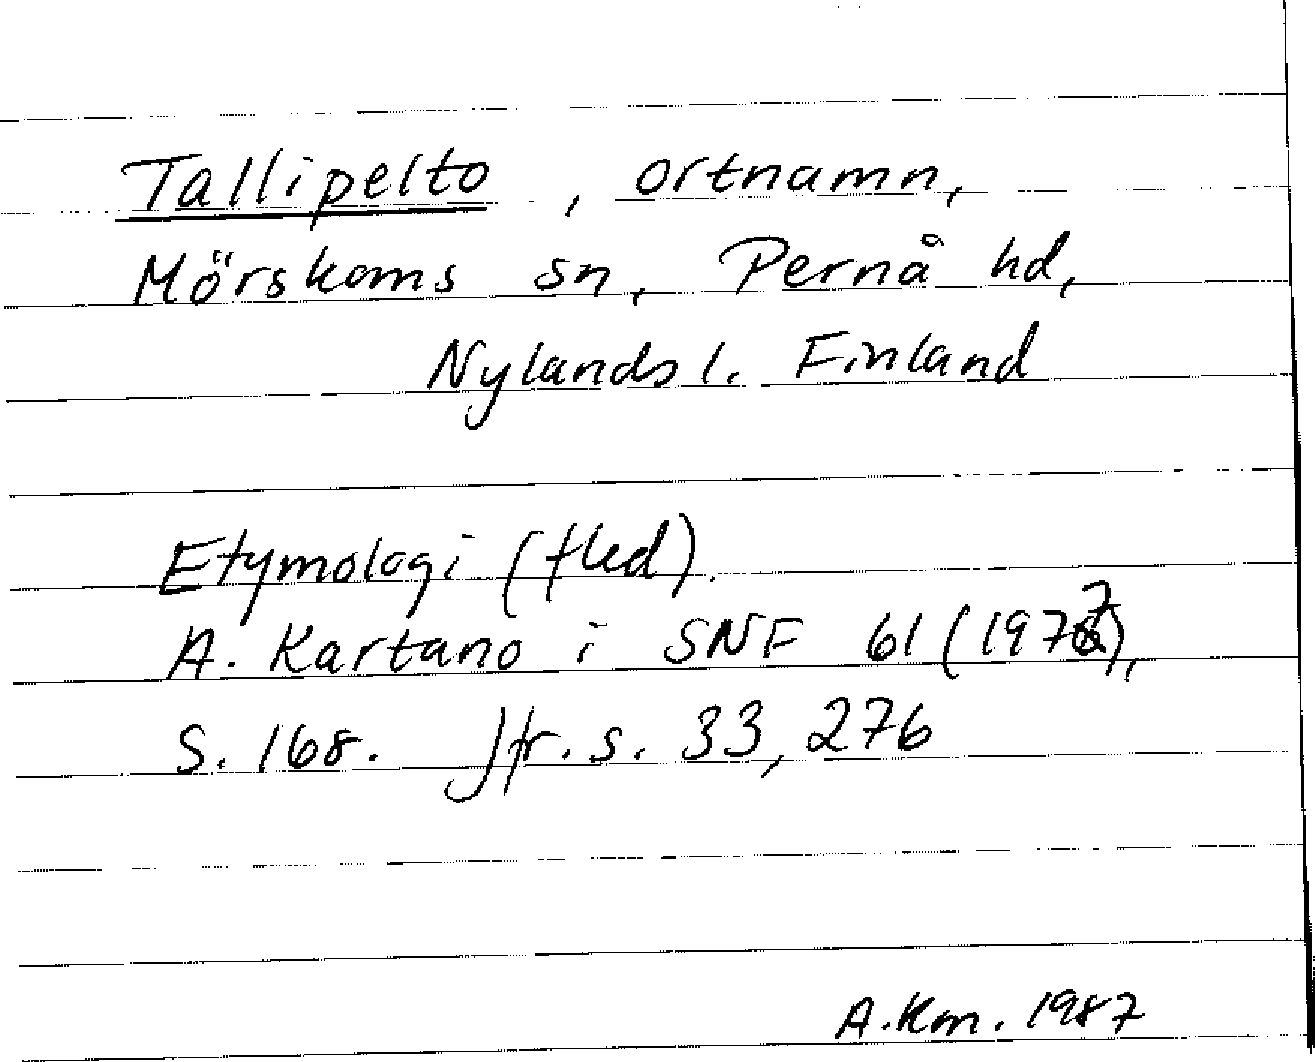 Tallipelto, ortnamn,
Mörskoms sn, Pernå hd,
Nylands l. Finland
Etymologi (fled).
A. Kartano i SNF 61 (1977),
S. 168. Jfr. s. 33, 276
A. Km. 1987